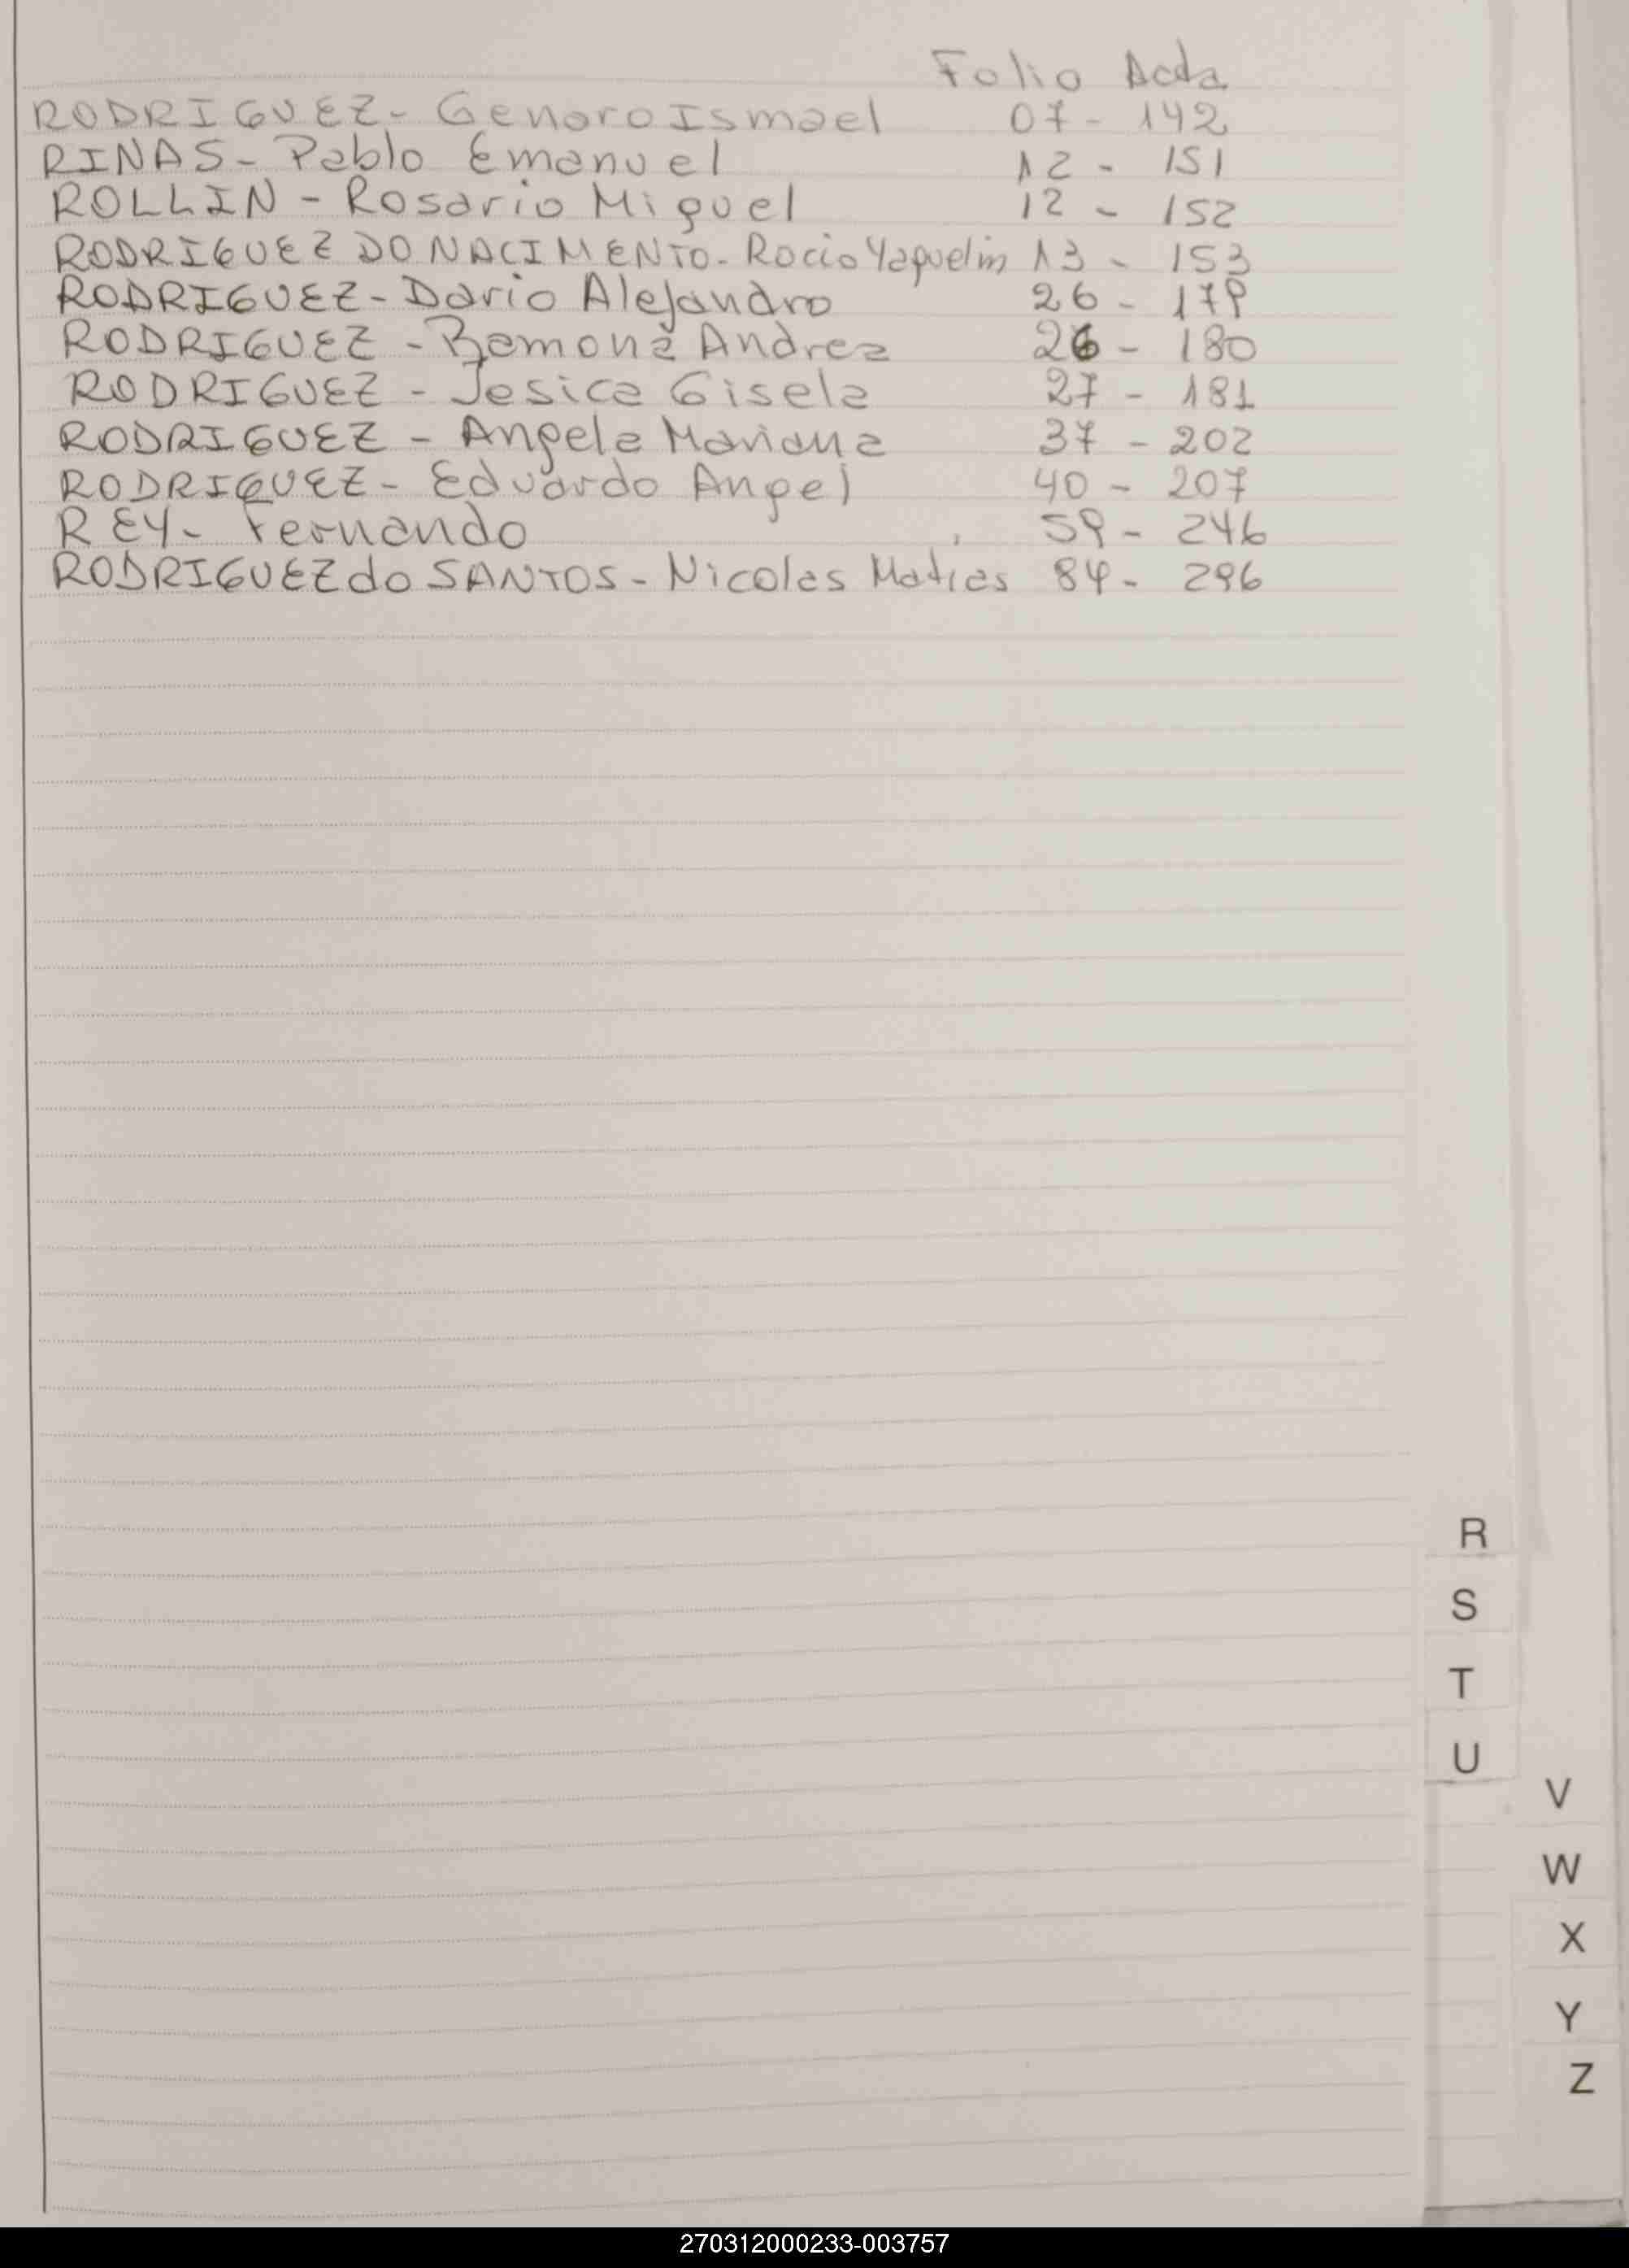 Folio Acta
RODRIGUEZ - Genaro Ismael 07 - 142
RINAS - Pablo Emanuel 12 - 151
ROLLIN - Rosario Miguel 12 - 152
RODRIGUEZ DO NACIMENTO - Rocio Yaquelin 13 - 153
RODRIGUEZ - Dario Alejandro 26 - 179
RODRIGUEZ - Ramona Andrea 26 - 180
RODRIGUEZ - Jesica Gisela 27 - 181
RODRIGUEZ - Angela Mariana 37 - 202
RODRIGUEZ - Eduardo Angel 40 - 207
REY - Fernando 59 - 246
RODRIGUEZ do SANTOS - Nicolas Matias 84 - 296
R
S
T
U
V
W
X
Y
Z
270312000233-003757